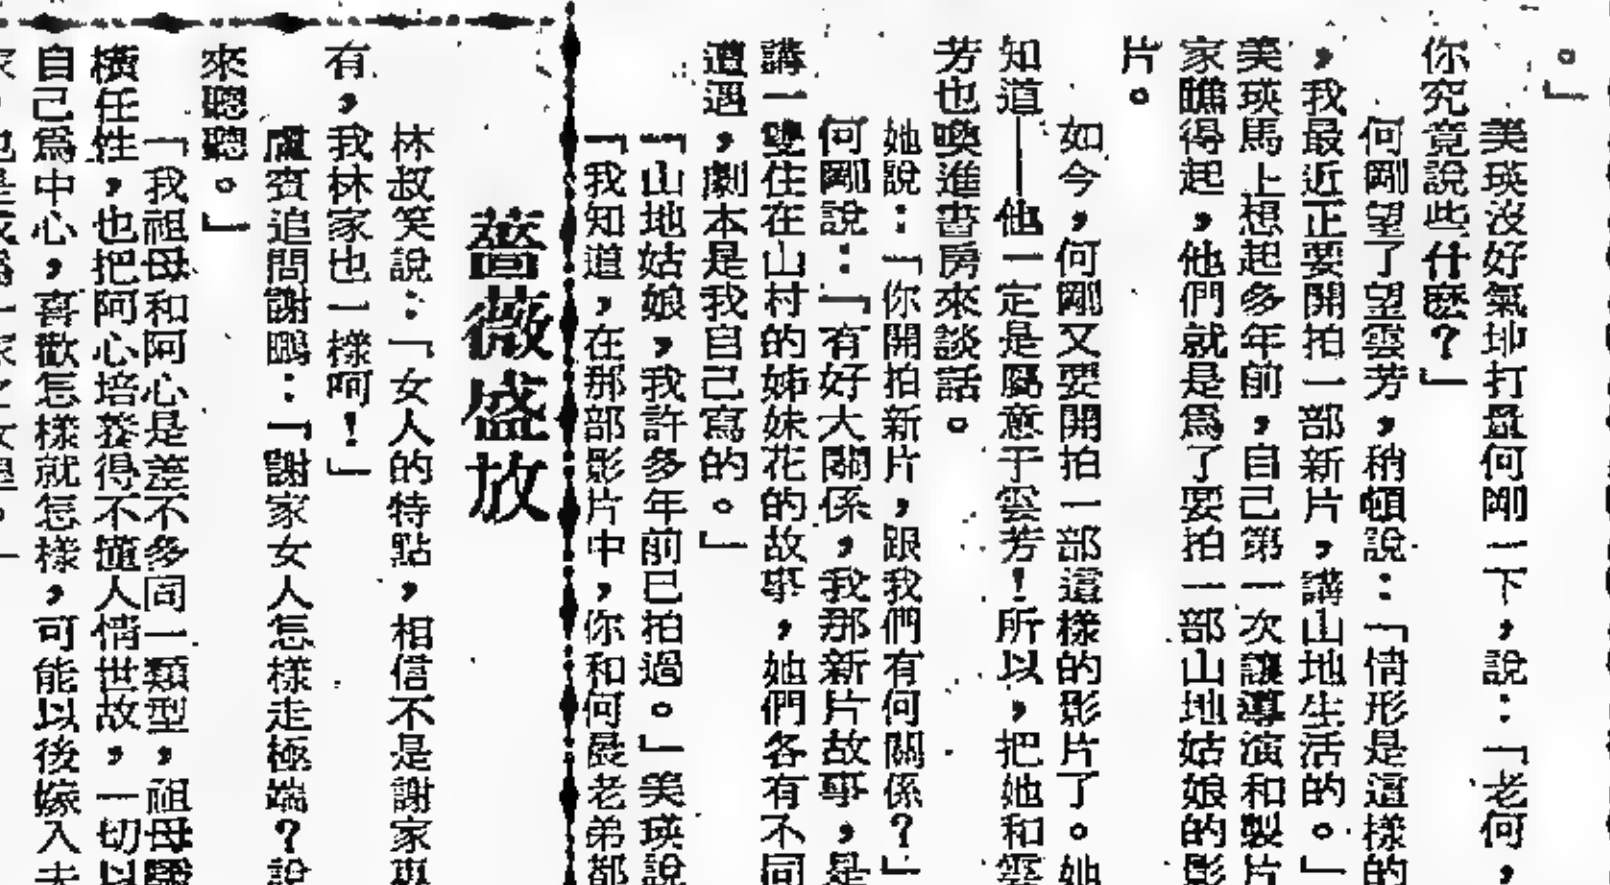 。」
美瑛沒好氣地打量何剛一下，說：「老何，
你究竟說些什麽？」
何剛望了望雲芳，稍頓說：「情形是這樣的
，我最近正要開拍一部新片，講山地生活的。」
美瑛馬上想起多年前，自己第一次讓導演和製片
家瞧得起，他們就是爲了要拍一部山地姑娘的影
片。
如今，何剛又要開拍一部這樣的影片了。她
知道——他一定是屬意于雲芳！所以，把她和雲
芳也喚進書房來談話。
她說：「你開拍新片，跟我們有何關係？」
何剛說：「有好大關係，我那新片故事，是
講一雙住在山村的姊妹花的故事，她們各有不同
遭遇，劇本是我自己寫的。」
「山地姑娘，我許多年前已拍過。」美瑛說
「我知道，在那部影片中，你和何晨老弟都
薔薇盛放
林叔笑說：「女人的特點，相信不是謝家專
有，我林家也一樣呵！」
盧賓追問謝鵬：「謝家女人怎樣走極端？說
來聽聽。」
「我祖母和阿心是差不多同一類型，祖母驕
橫任性，也把阿心培養得不懂人情世故，一切以
自己爲中心，喜歡怎樣就怎樣，可能以後嫁入夫